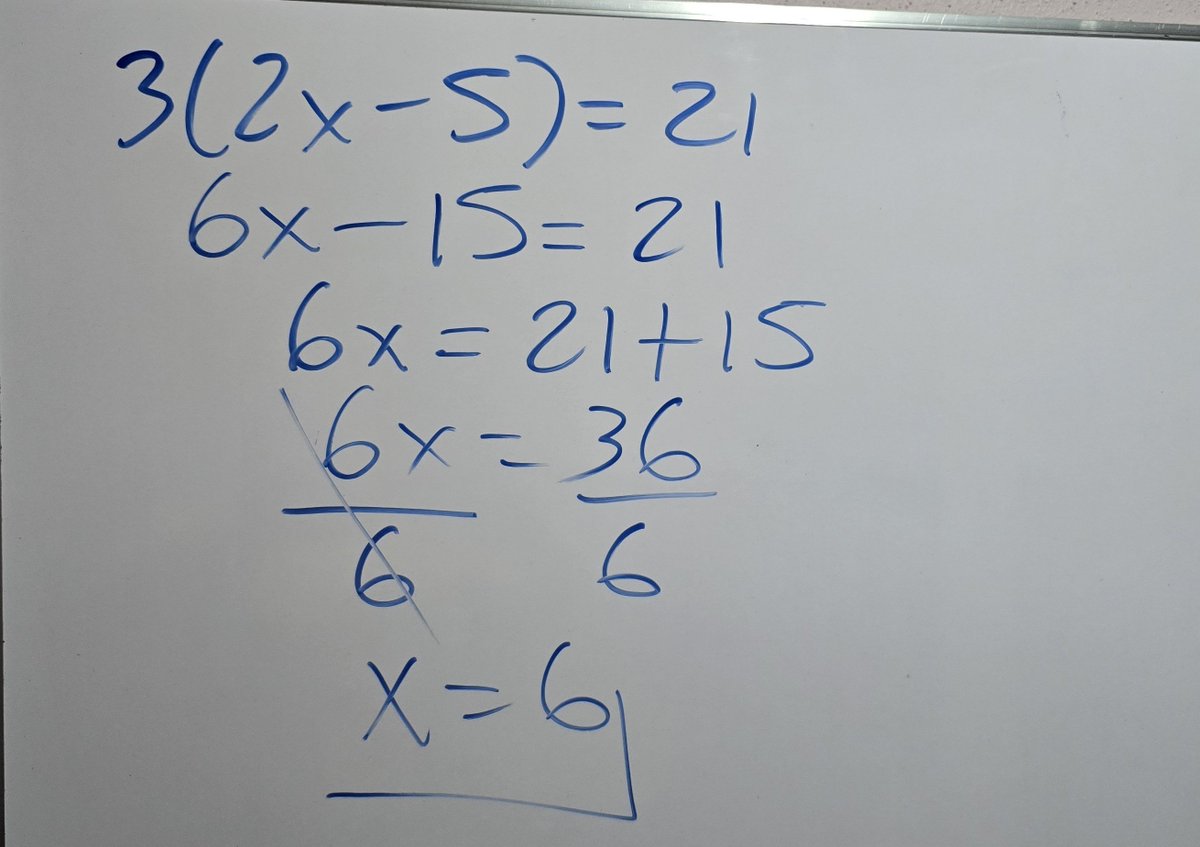 3(2x-5)=21
6x-15=21
6x=21+15
6x=36
6 6
x=6